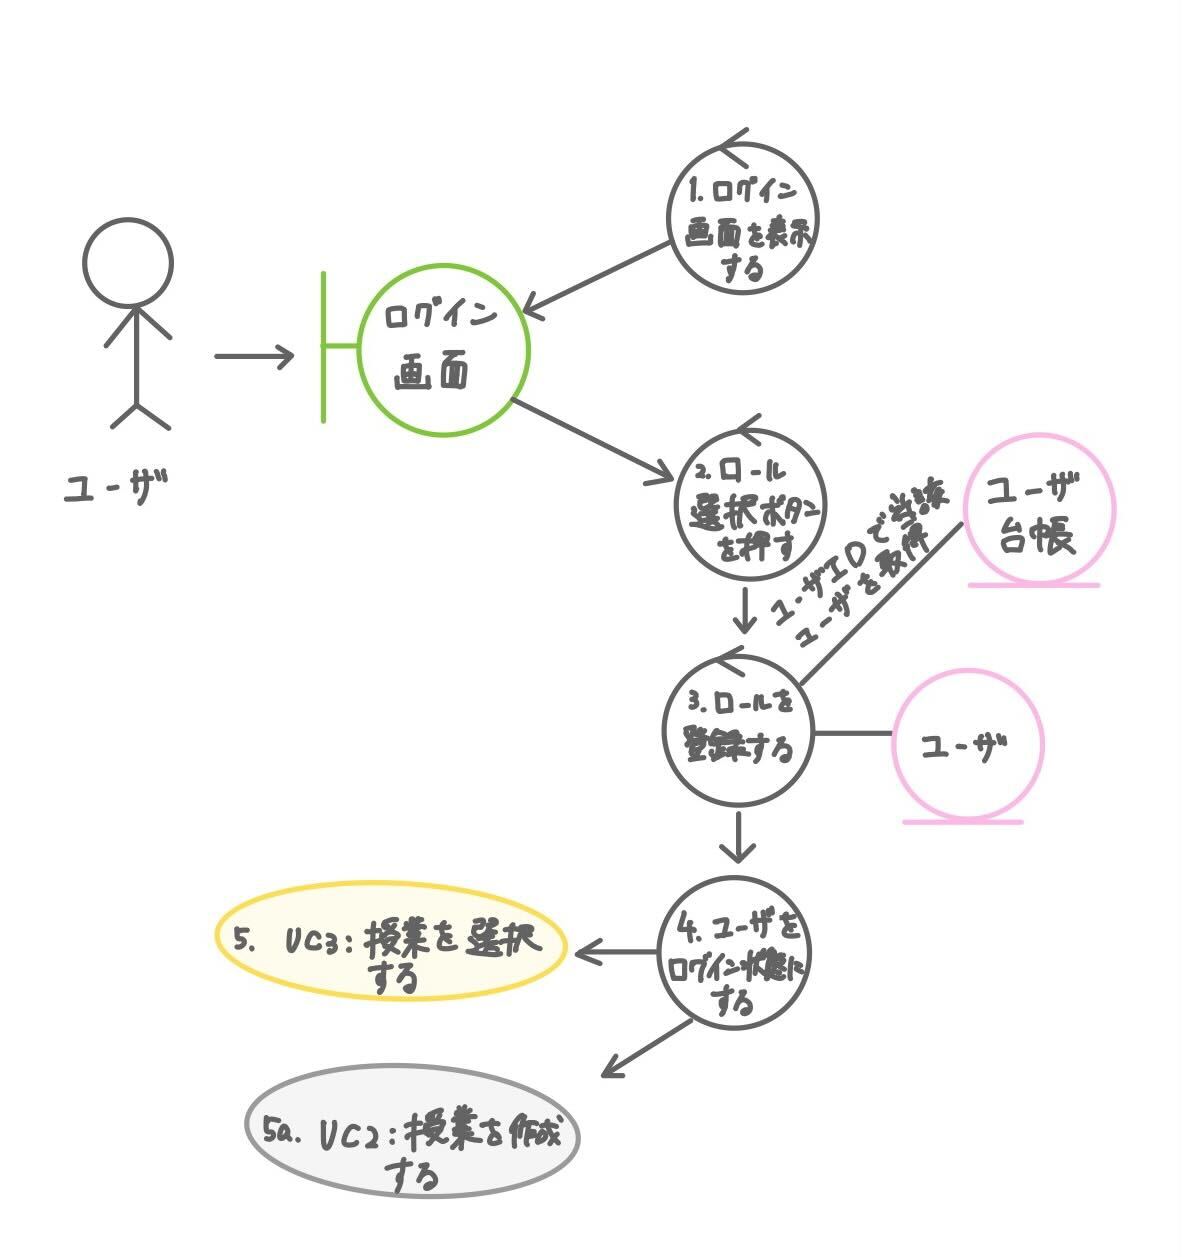 1. ログイン
画面を表示
する
ログイン
画面
ユーザ
2. ロール
選択ボタン
を押す
ユーザIDで当該
ユーザを取得
ユーザ
台帳
3. ロールを
登録する
ユーザ
4. ユーザを
ログイン状態に
する
5. UC3: 授業を選択
する
5a. UC2: 授業を作成
する